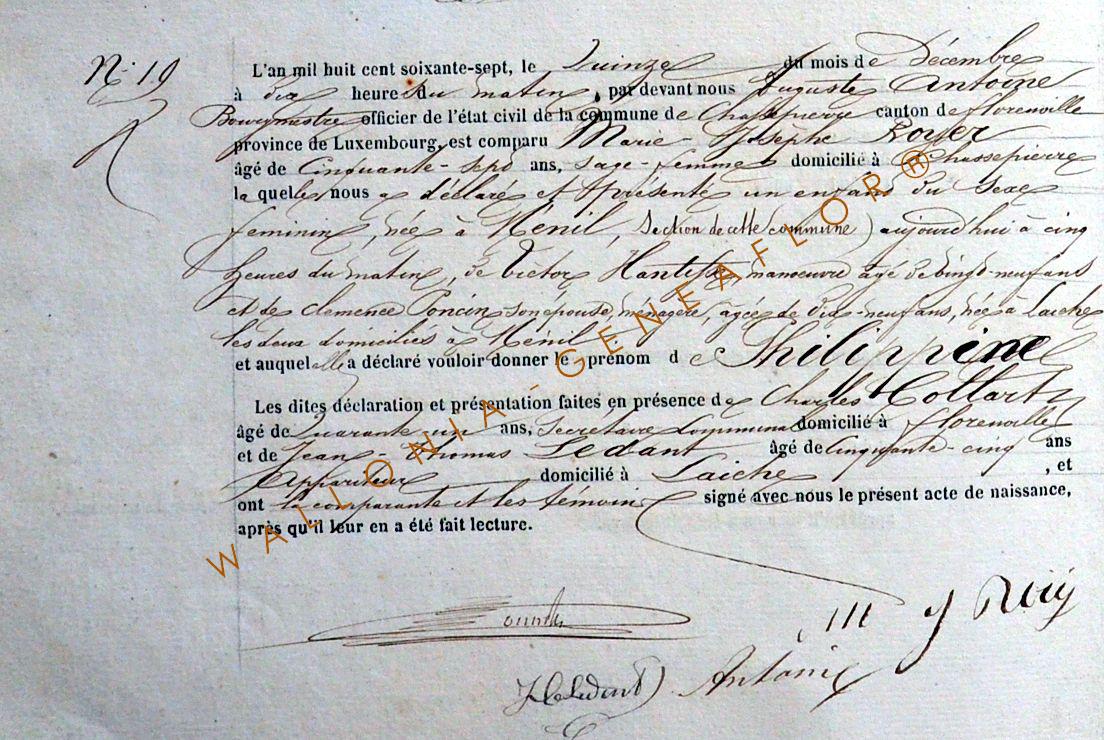 N° 19
L'an mil huit cent soixante-sept, le Quinze du mois de Décembre
à dix heures du matin, par devant nous Auguste Antoine
Bourgmestre officier de l'état civil de la commune de Chassepierre canton de florenville
province de Luxembourg, est comparu Marie-Josèphe Royer
âgé de Cinquante-sept ans, sage-femme domicilié à Chassepierre
la quelle nous a déclaré et présenté un enfant du sexe
feminin, née à Ménil, (Section de cette commune) aujourd'hui à cinq
heures du matin, de Victor, manoeuvre âgé de vingt-neuf ans
et de Clemence Poncin son épouse, ménagère, agée de dix-neuf ans, née à Laiche
les deux domiciliés à Ménil
et auquel elle a déclaré vouloir donner le prénom de Philippine
Les dites déclaration et présentation faites en présence de Charles Collart
âgé de Quarante un ans, Secrétaire Communal domicilié à florenville
et de Jean-Thomas Ledant âgé de Cinquante-cinq ans
Appariteur domicilié à Laiche, et
ont la comparante et les témoins signé avec nous le présent acte de naissance,
après qu'il leur en a été fait lecture.
M J Roiy
Antoine
WALLONIA-GENEAFLOR®